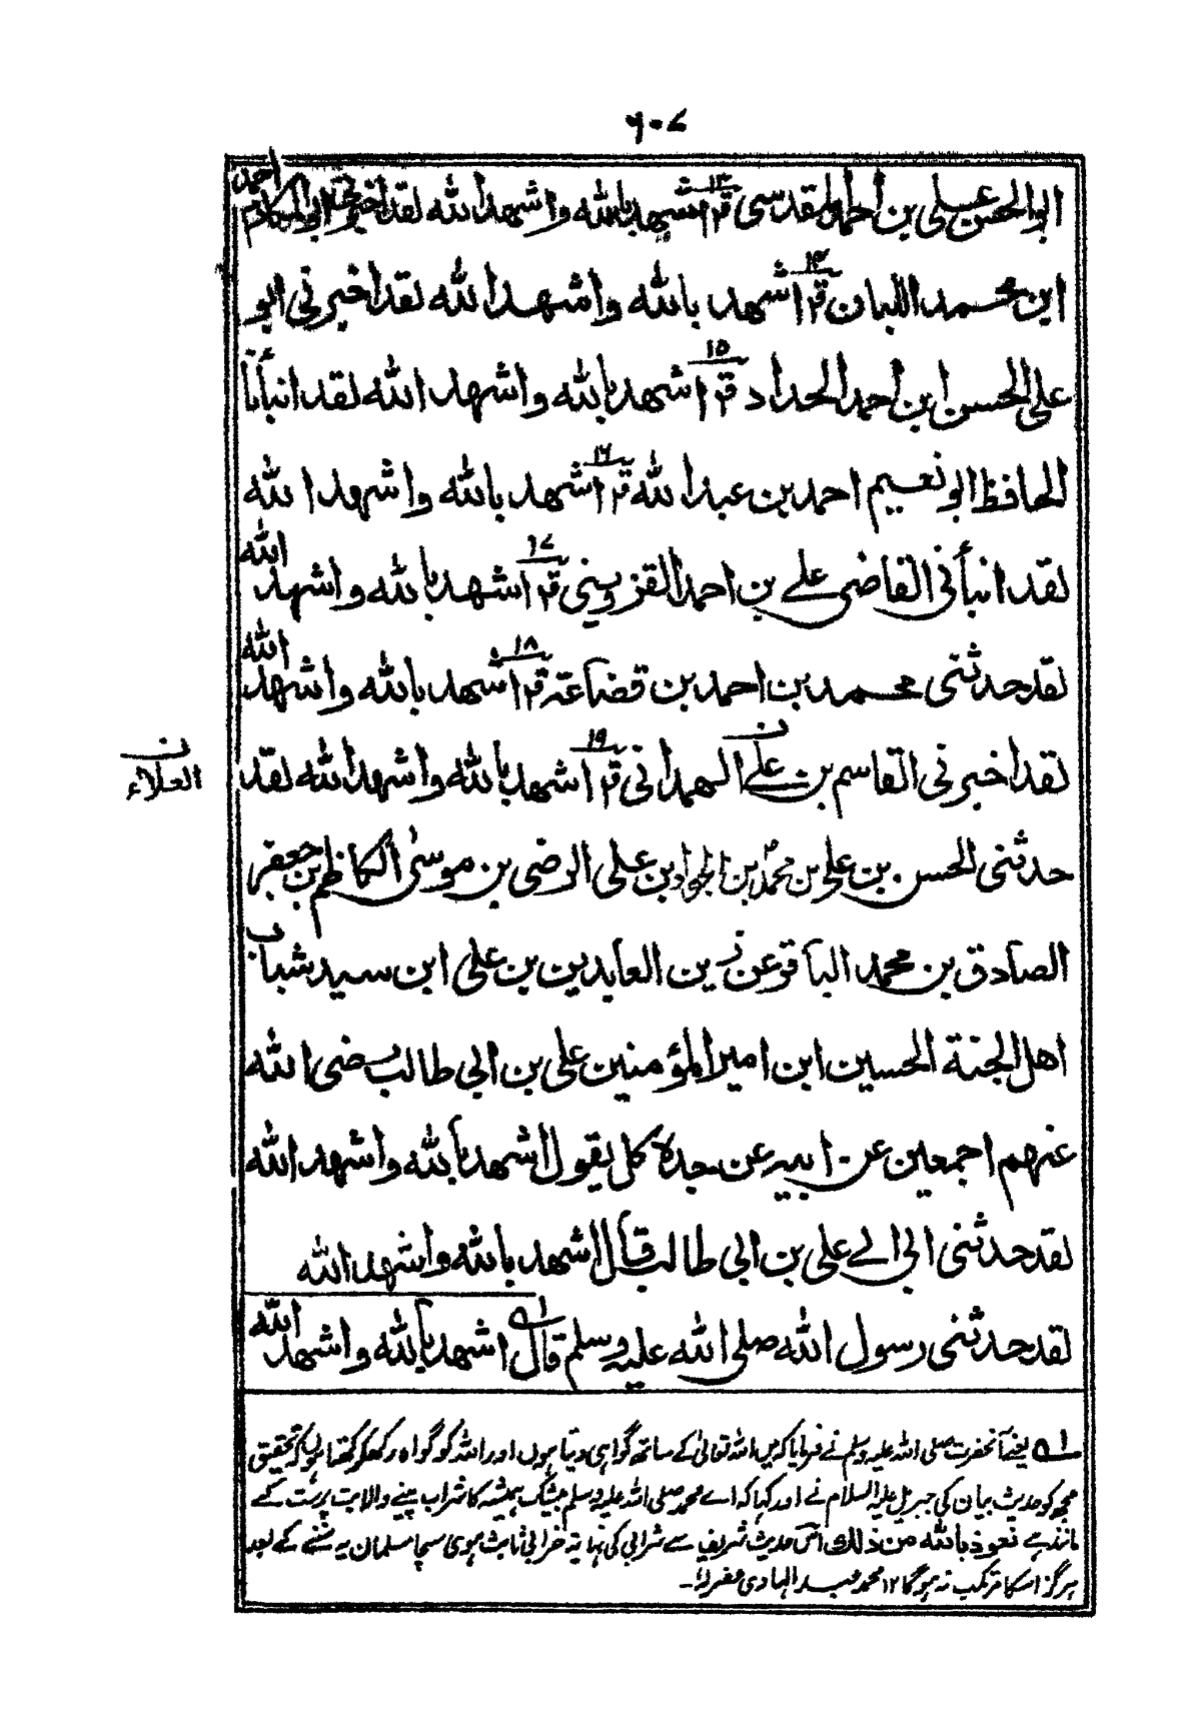 ۶۰۷
ابو الحسن علی بن احمد المقدسی ق٢ ۱۳ اشهد بالله واشهد الله لقد اخبرنی ابو المکارم احمد
ابن محمد اللبان ق٢ ۱۴ اشهد بالله واشهد الله لقد اخبرنی ابو
علی الحسن ابن احمد الحداد ق٢ ۱۵ اشهد بالله واشهد الله لقد انبأنا
الحافظ ابو نعیم احمد بن عبد الله ق٢ ۱۶ اشهد بالله واشهد الله
لقد انبأنی القاضی علے بن احمد القزوینی ق٢ ۱۷ اشهد بالله واشهد الله
لقد حدثنی محمد بن احمد بن قضاعة ق٢ ۱۸ اشهد بالله واشهد الله
لقد اخبرنی القاسم بن علے ن الهمدانی ق٢ ۱۹ اشهد بالله واشهد الله لقد
ن العلاء
حدثنی الحسن بن علی بن محمد بن الجواد بن علی الرضی بن موسی الکاظم بن جعفر
الصادق بن محمد الباقر عن زین العابدین بن علی ابن سید شباب
اهل الجنة الحسین ابن امیر المؤمنین علی بن ابی طالب رضی الله
عنهم اجمعین عن ابیه عن جده کل یقول اشهد بالله واشهد الله
لقد حدثنی ابی ابے علی بن ابی طالب قال اشهد بالله واشهد الله
لقد حدثنی رسول الله صلی الله علیه وسلم قال ۱؎ اشهد بالله واشهد الله
۱؎ یعنے آنحضرت صلی اللہ علیہ وسلم نے فرمایا کہ میں اللہ تعالیٰ کے ساتھ گواہی دیتا ہوں اور اللہ کو گواہ رکھکر کہتا ہوں کہ تحقیق
مجھ کو حدیث بیان کی جبریل علیہ السلام نے اور کہا کہ اے محمد صلی اللہ علیہ وسلم بیشک ہمیشہ کا شراب پینے والا بت پرست کے
مانند ہے نعوذ باللہ من ذلک اس حدیث شریف سے شرابی کی نہایۃ خرابی ثابت ہوی سچا مسلمان یہ سننے کے بعد
ہرگز اسکا مرتکب نہ ہوگا ۱۲ محمد عبد الہادی غفرلہ۔